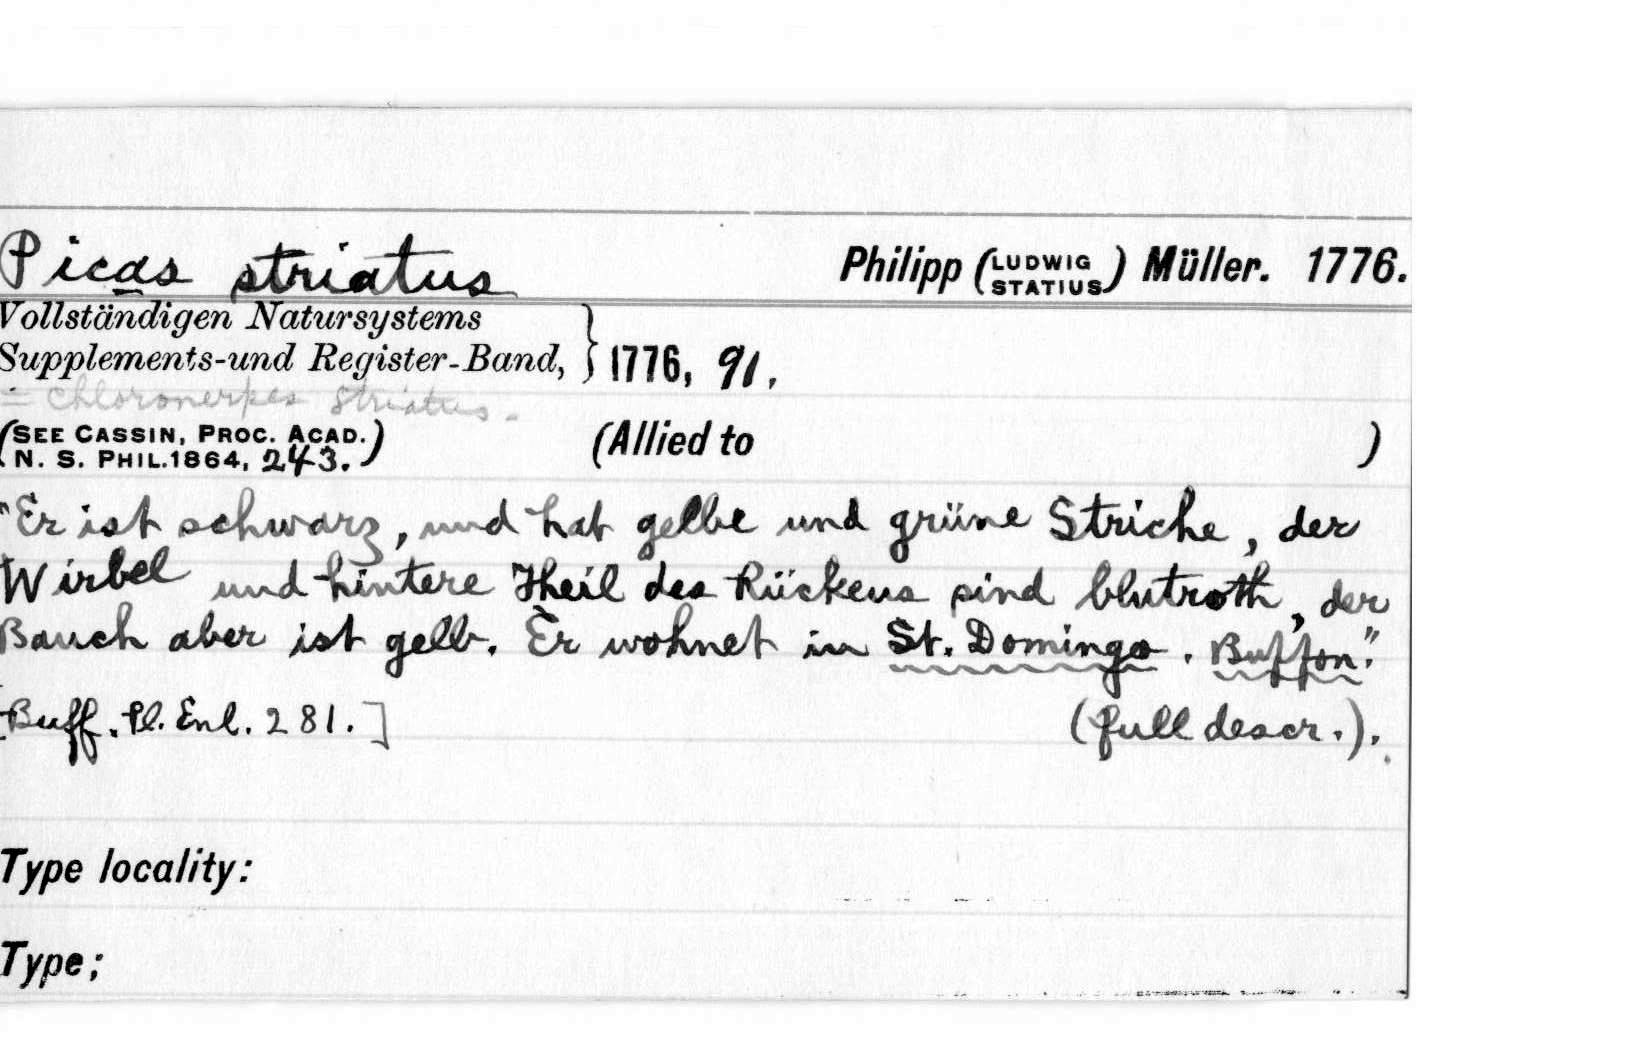 Picas striatus Philipp (LUDWIG STATIUS) Müller. 1776.
Vollständigen Natursystems
Supplements-und Register-Band, } 1776, 91.
= chloronerpes striatus.
(SEE CASSIN, PROC. ACAD. N. S. PHIL. 1864, 243.) (Allied to )
"Er ist schwarz, und hat gelbe und grüne Striche, der
Wirbel und hintere Theil des Rückens sind blutroth, der
Bauch aber ist gelb. Er wohnet in St. Domingo. Buffon."
[Buff. Pl. Enl. 281.] (full descr.).
Type locality:
Type;